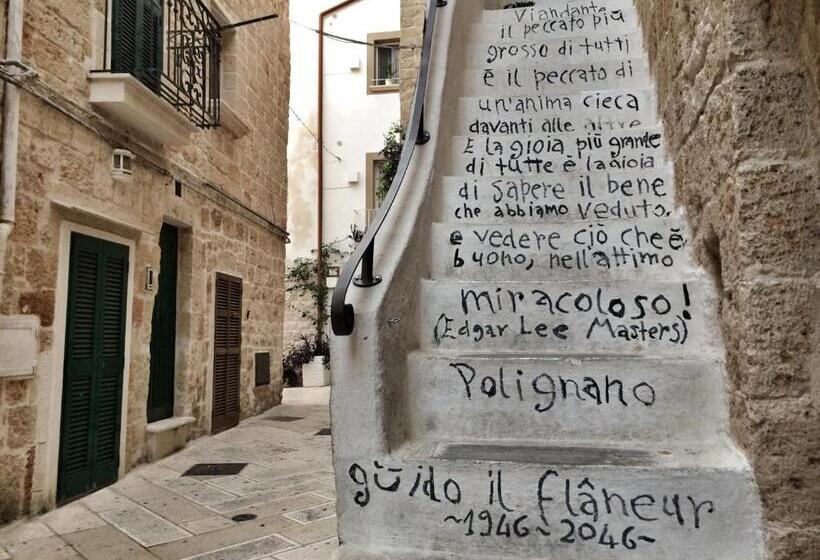 Viandante
il peccato più
grosso di tutti
è il peccato di
un'anima cieca
davanti alle altre
E la gioia più grande
di tutte è la gioia
di sapere il bene
che abbiamo veduto,
e vedere ciò che è
buono, nell'attimo
miracoloso!
(Edgar Lee Masters)
Polignano
guido il flâneur
~1946~2046~